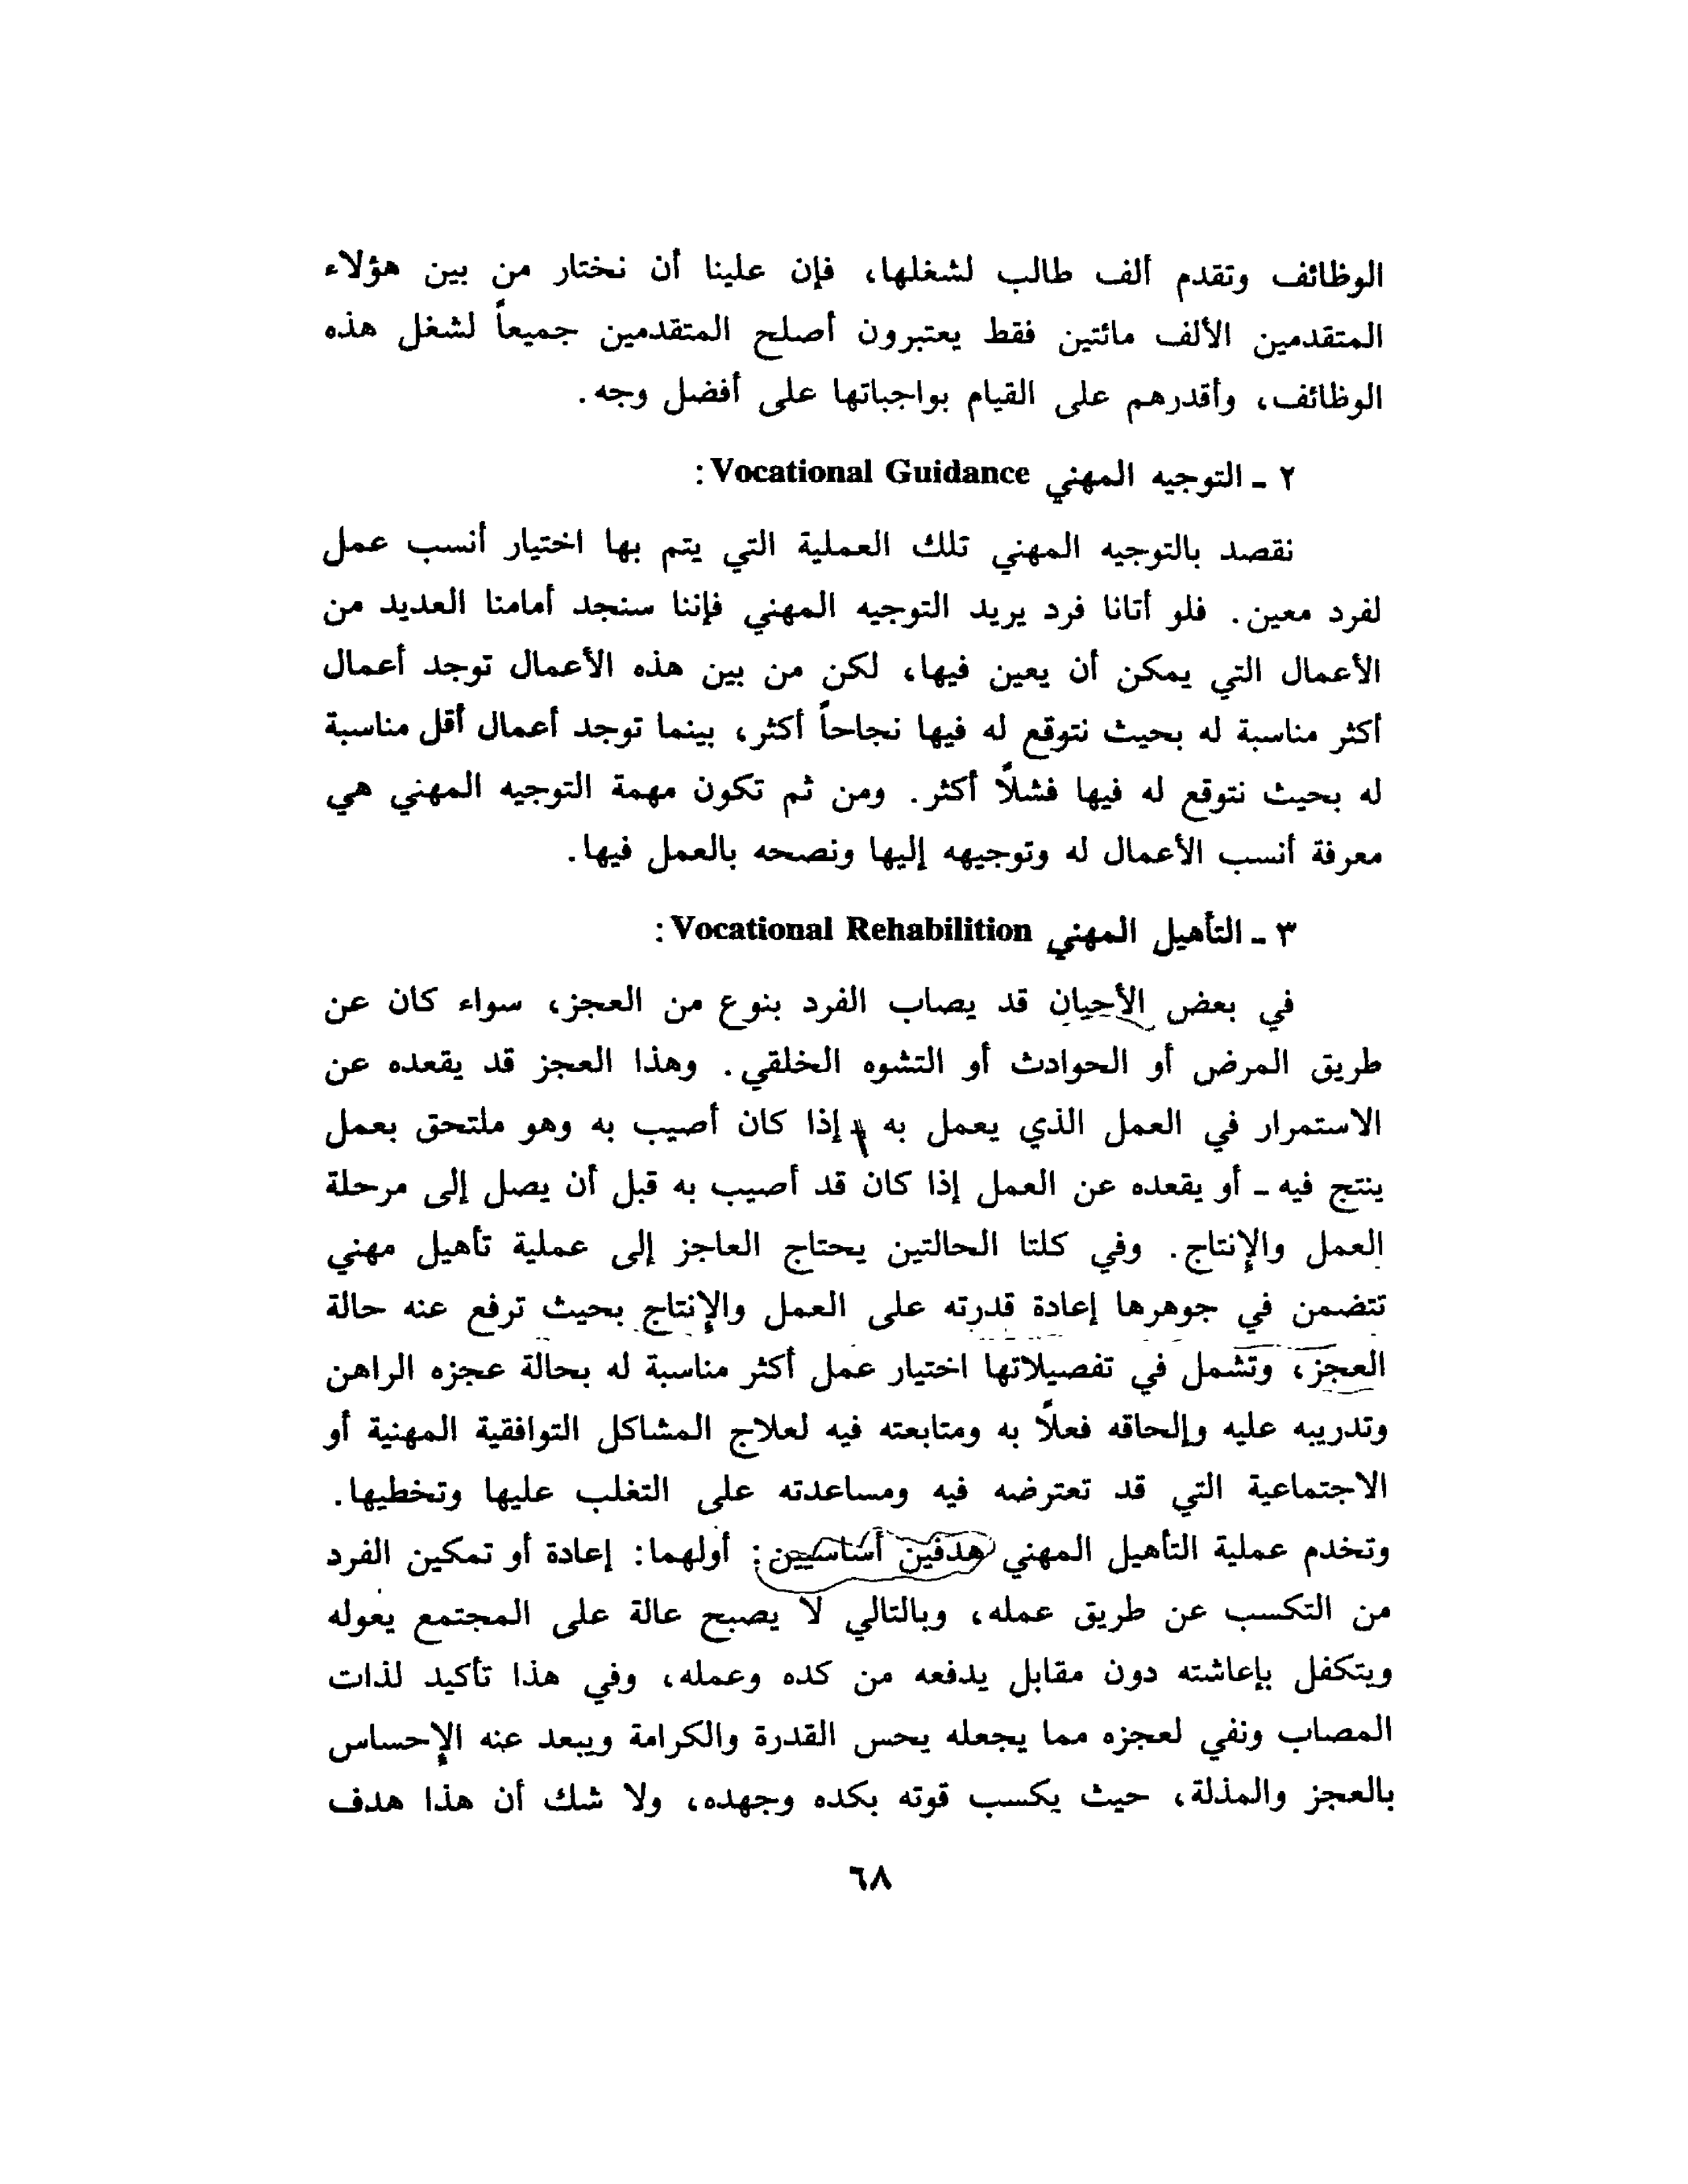 الوظائف وتقدم ألف طالب لشغلها، فإن علينا أن نختار من بين هؤلاء
المتقدمين الألف مائتين فقط يعتبرون أصلح المتقدمين جميعاً لشغل هذه
الوظائف، وأقدرهم على القيام بواجباتها على أفضل وجه.
٢ ـ التوجيه المهني Vocational Guidance:
نقصد بالتوجيه المهني تلك العملية التي يتم بها اختيار أنسب عمل
لفرد معين. فلو أتانا فرد يريد التوجيه المهني فإننا سنجد أمامنا العديد من
الأعمال التي يمكن أن يعين فيها، لكن من بين هذه الأعمال توجد أعمال
أكثر مناسبة له بحيث نتوقع له فيها نجاحاً أكثر، بينما توجد أعمال أقل مناسبة
له بحيث نتوقع له فيها فشلاً أكثر. ومن ثم تكون مهمة التوجيه المهني هي
معرفة أنسب الأعمال له وتوجيهه إليها ونصحه بالعمل فيها.
٣ ـ التأهيل المهني Vocational Rehabilition:
في بعض الأحيان قد يصاب الفرد بنوع من العجز، سواء كان عن
طريق المرض أو الحوادث أو التشوه الخلقي. وهذا العجز قد يقعده عن
الاستمرار في العمل الذي يعمل به ـ إذا كان أصيب به وهو ملتحق بعمل
ينتج فيه ـ أو يقعده عن العمل إذا كان قد أصيب به قبل أن يصل إلى مرحلة
العمل والإنتاج. وفي كلتا الحالتين يحتاج العاجز إلى عملية تأهيل مهني
تتضمن في جوهرها إعادة قدرته على العمل والإنتاج بحيث ترفع عنه حالة
العجز، وتشمل في تفصيلاتها اختيار عمل أكثر مناسبة له بحالة عجزه الراهن
وتدريبه عليه وإلحاقه فعلاً به ومتابعته فيه لعلاج المشاكل التوافقية المهنية أو
الاجتماعية التي قد تعترضه فيه ومساعدته على التغلب عليها وتخطيها.
وتخدم عملية التأهيل المهني هدفين أساسيين: أولهما: إعادة أو تمكين الفرد
من التكسب عن طريق عمله، وبالتالي لا يصبح عالة على المجتمع يعوله
ويتكفل بإعاشته دون مقابل يدفعه من كده وعمله، وفي هذا تأكيد لذات
المصاب ونفي لعجزه مما يجعله يحس القدرة والكرامة ويبعد عنه الإحساس
بالعجز والمذلة، حيث يكسب قوته بكده وجهده، ولا شك أن هذا هدف
٦٨